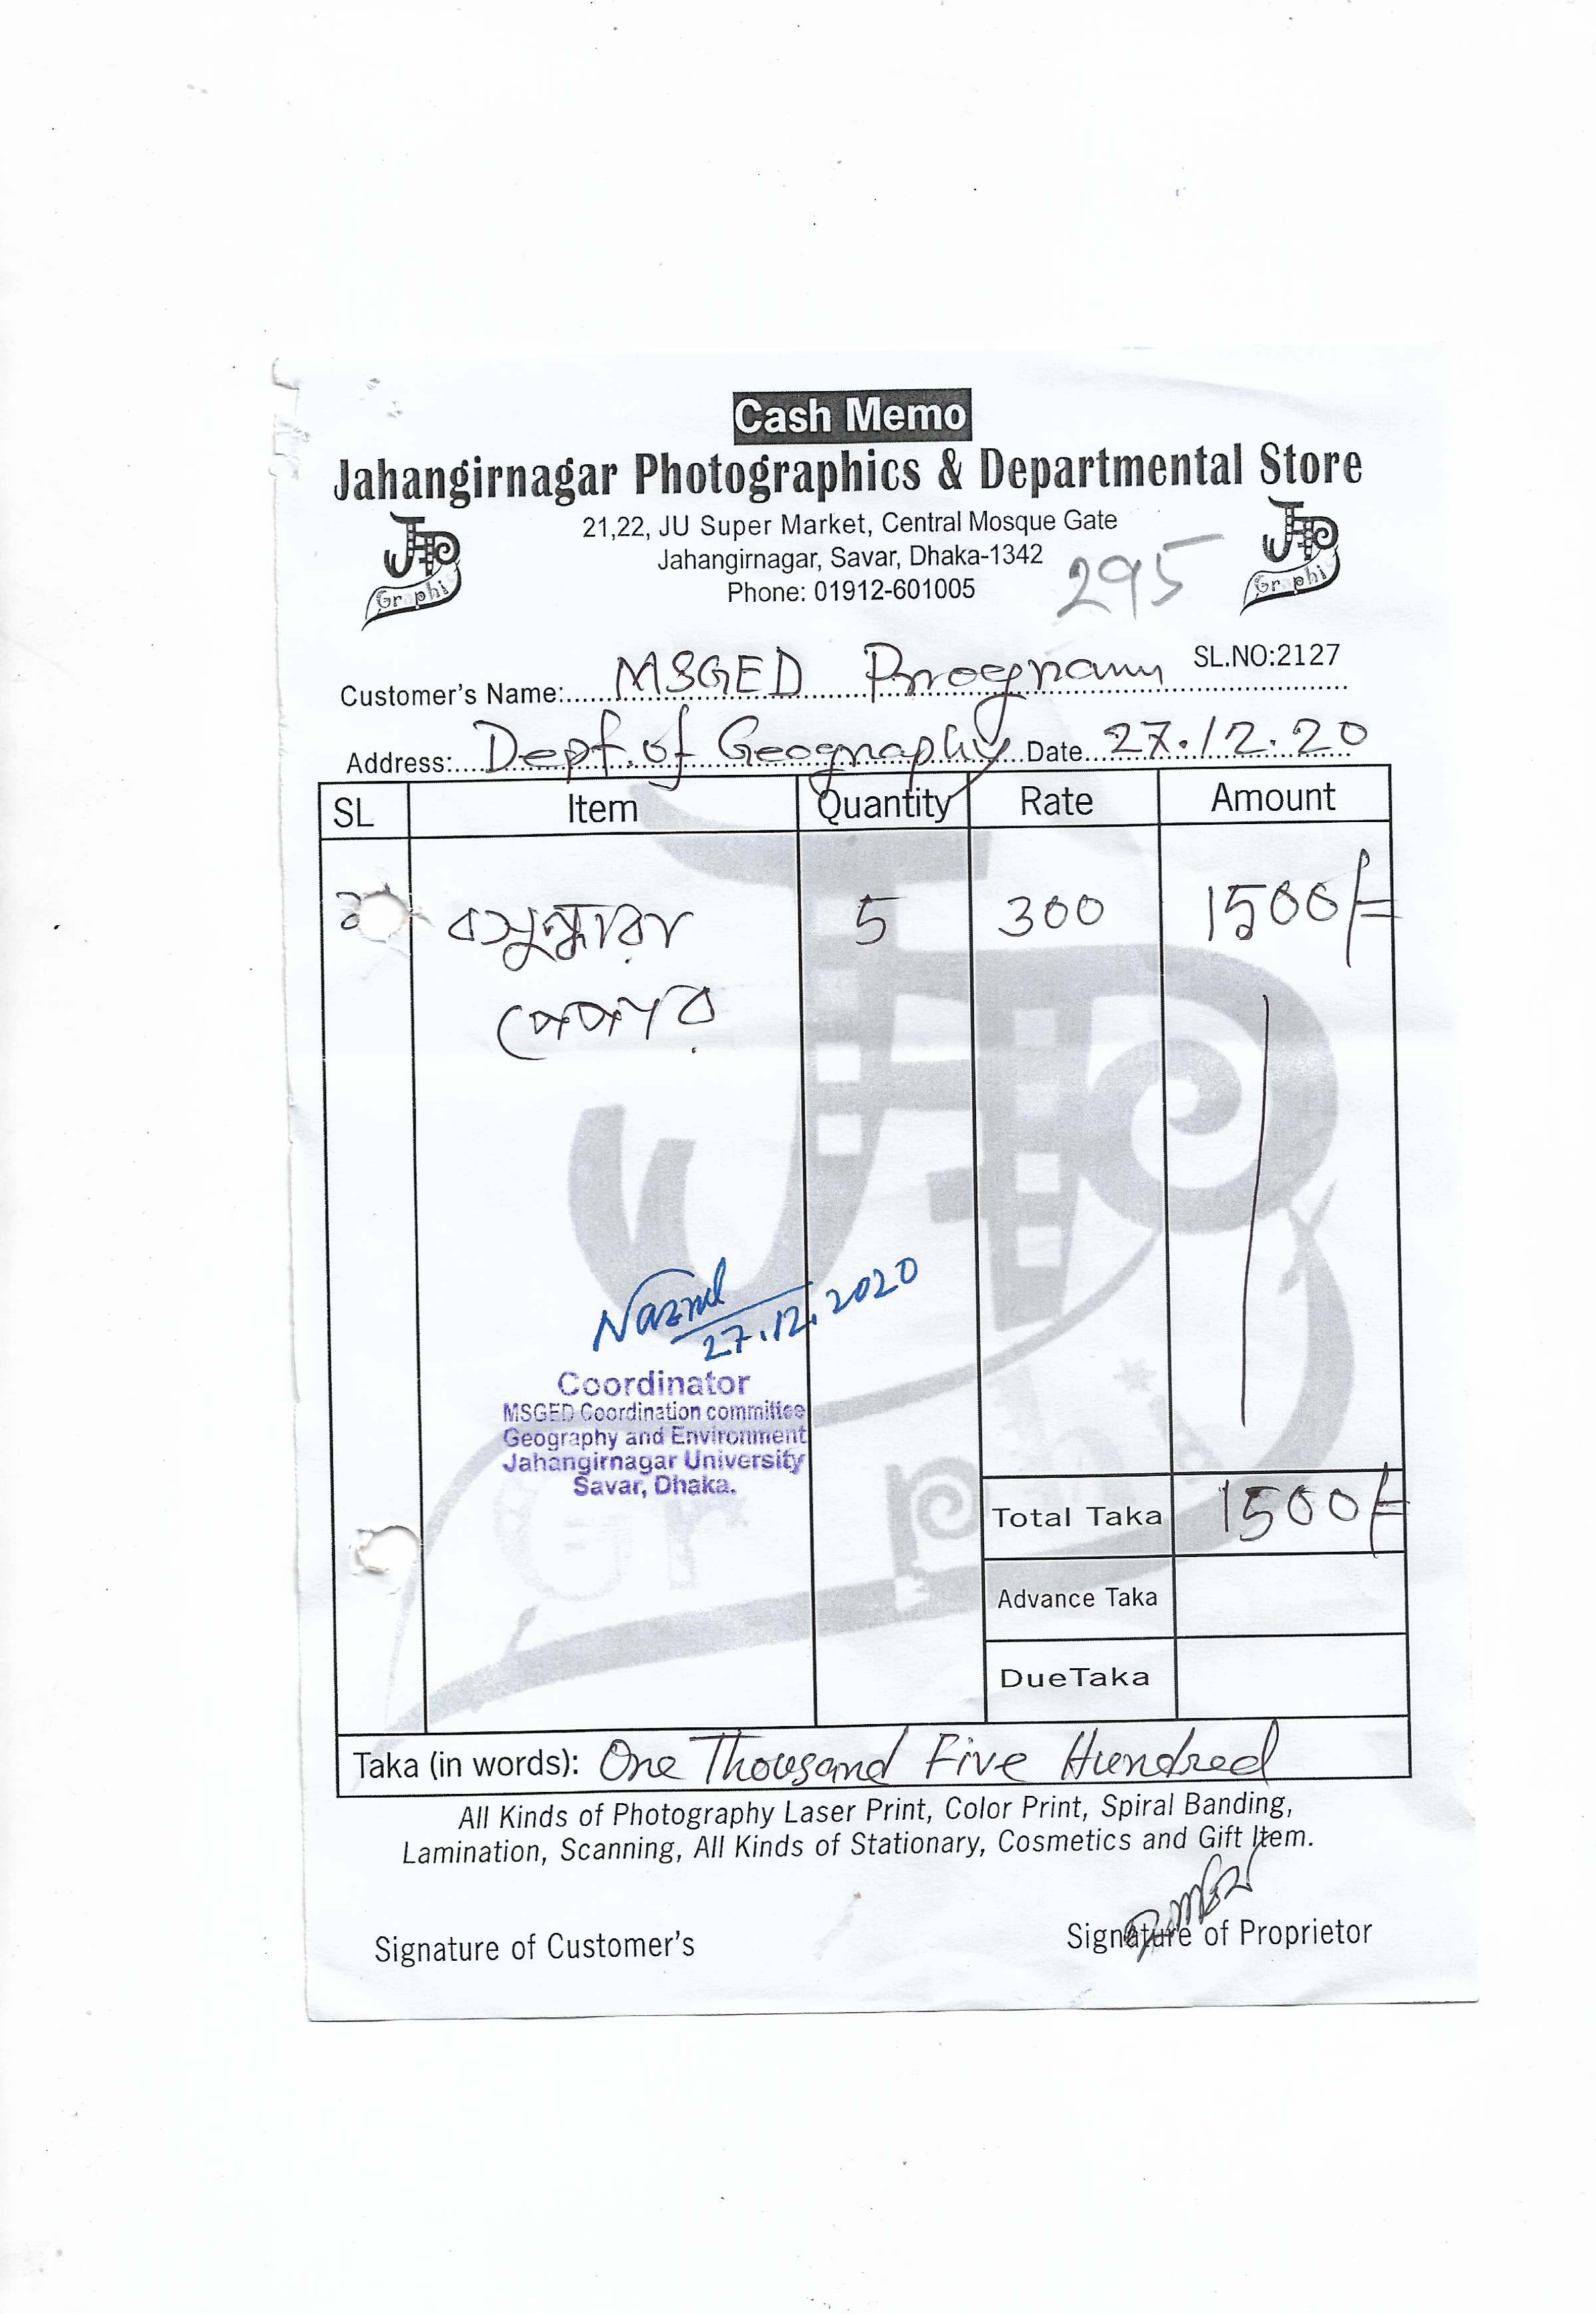 Cash Memo
Jahangirnagar Photographics & Departmental Store
21,22, JU Super Market, Central Mosque Gate
Jahangirnagar, Savar, Dhaka-1342
Phone: 01912-601005
295
JP Graphi
Graphi
SL.NO:2127
Customer's Name: MSGED Program
Address: Dept. of Geography Date 27.12.20
SL Item Quantity Rate Amount
বসুন্ধারা 5 300 1500/=
পেপার
Nazrul
27.12.2020
Coordinator
MSGED Coordination committee
Geography and Environment
Jahangirnagar University
Savar, Dhaka.
Total Taka 1500/=
Advance Taka
DueTaka
Taka (in words): One Thousand Five Hundred
All Kinds of Photography Laser Print, Color Print, Spiral Banding,
Lamination, Scanning, All Kinds of Stationary, Cosmetics and Gift Item.
Signature of Customer's Signature of Proprietor